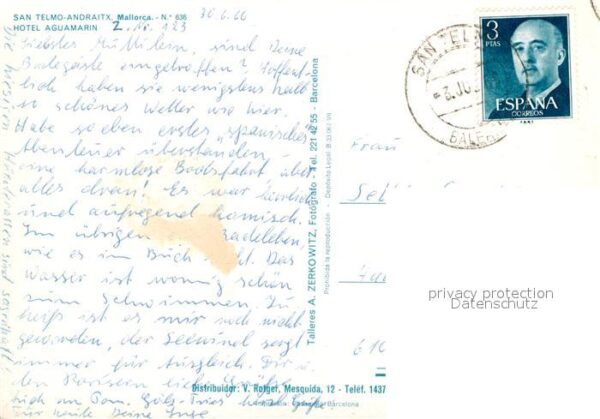 SAN TELMO-ANDRAITX, Mallorca. - N.º 636
HOTEL AGUAMARIN
Z. Nr. 123
30.6.66
Liebstes Mütterlein, sind Deine
Badegäste eingetroffen? Hoffent-
lich haben sie wenigstens halb
so schönes Wetter wie hier.
Habe soeben erstes "spanisches"
Abenteuer überstanden -
eine harmlose Bootsfahrt aber
alles dran! Es war
und aufregend komisch.
Im übrigen Badeleben,
wie es im Buch steht. Das
Wasser ist wonnig schön
zum Schwimmen. Zu
heiß ist es mir noch nicht
geworden, der Seewind sorgt
immer für Ausgleich. Dir u.
den Parisern
auch an Tom.
Für heute Deine Inge
Die meisten sind
Talleres A. ZERKOWITZ, Fotógrafo - Tel. 221 42 55 - Barcelona
Prohibida la reproducción - Depósito Legal B. 33.061 VII
Distribuidor: V. Rotger, Mesquida, 12 - Teléf. 1437
Barcelona
SAN TEL
3. JU
BALE
3
PTAS
ESPAÑA
CORREOS
Frau
privacy protection
Datenschutz